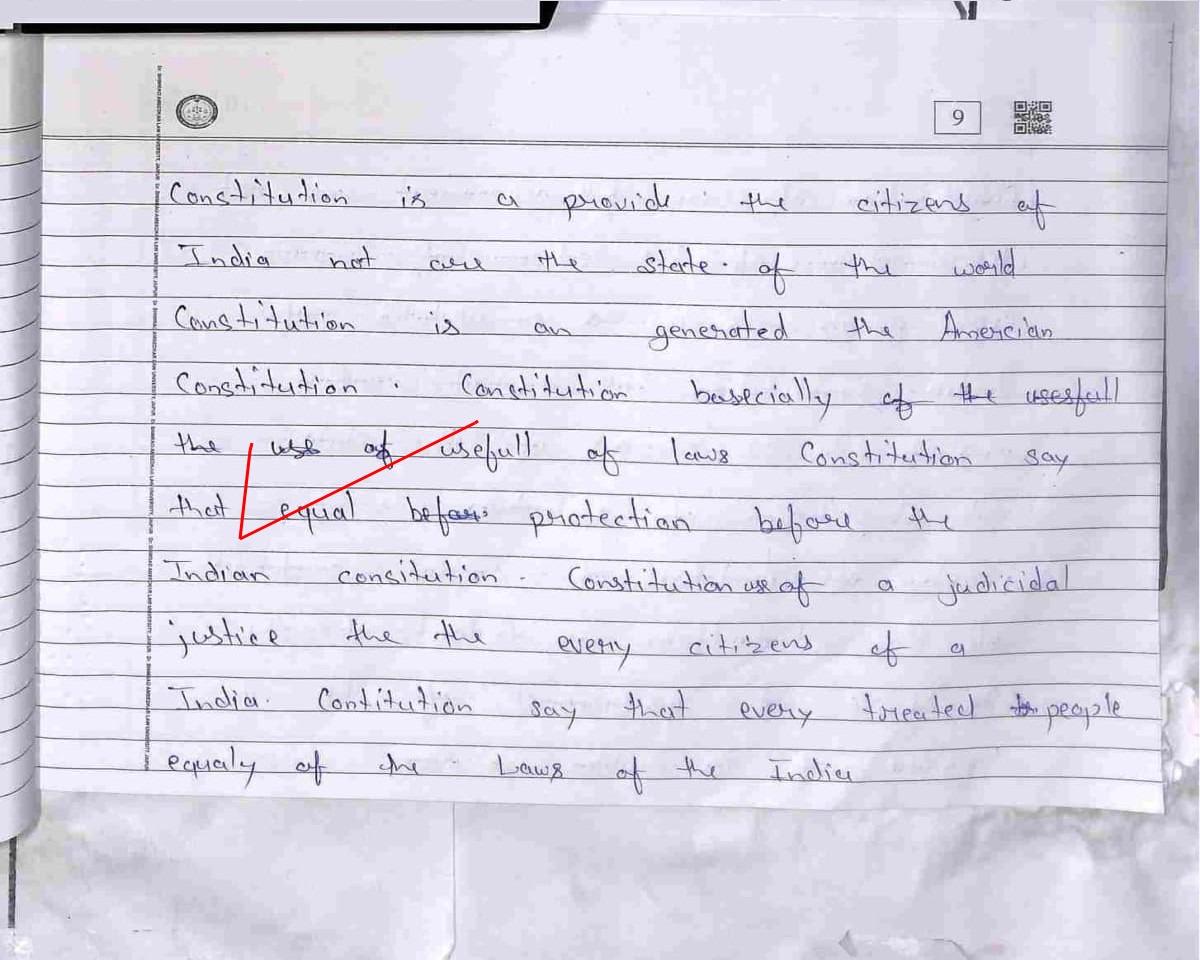 9
Constitution is a provide the citizens of
India not are the state of the world
Constitution is an generated the Amercian
Constitution. Constitution basecially of the usesfull
the use of usefull of laws Constitution say
that equal before protection before the
Indian consitution. Constitution use of a judicidal
justice the the every citizens of a
India. Contitution say that every treated people
equaly of the Laws of the India